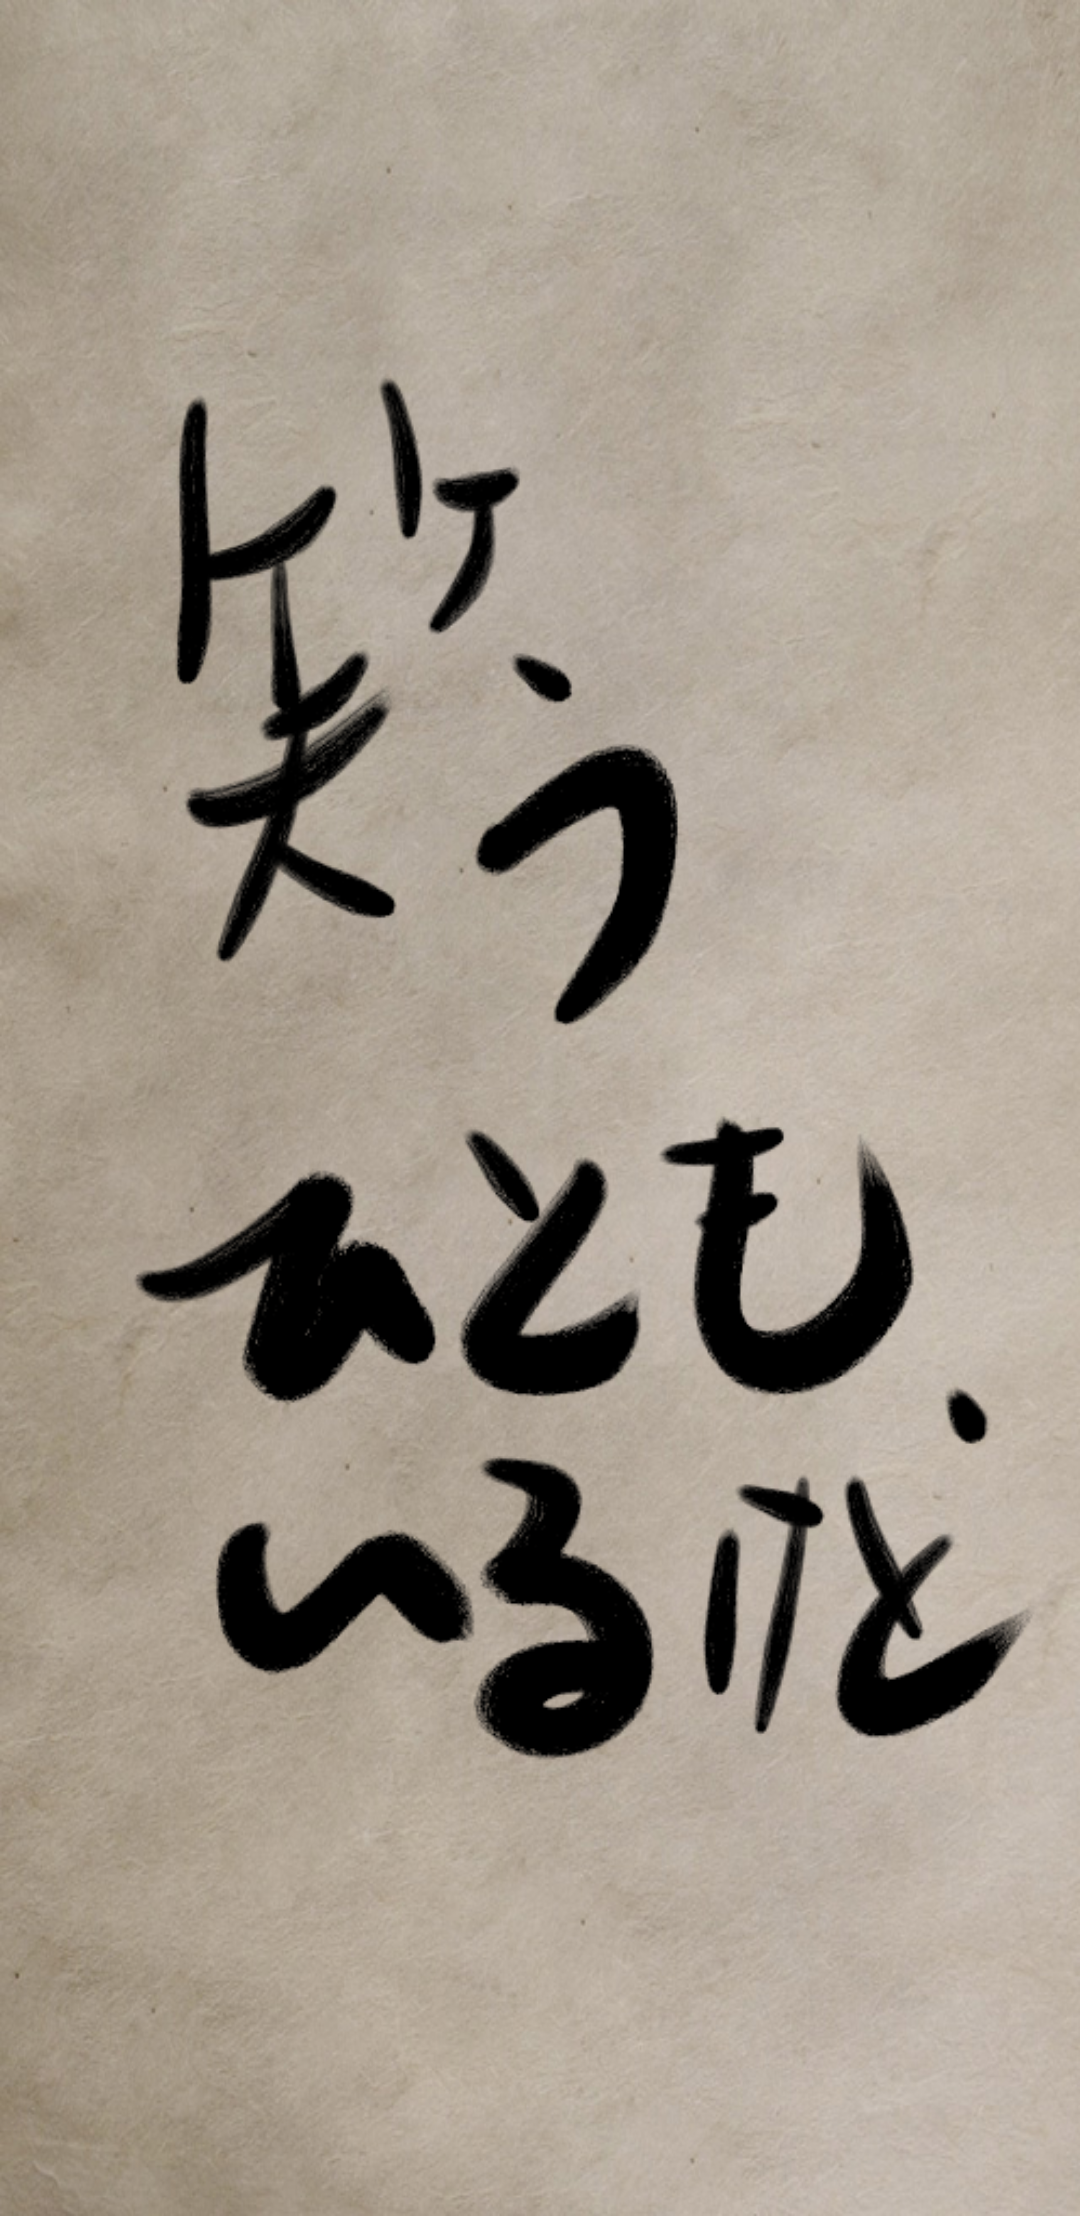 笑う
ひとも
いるけど